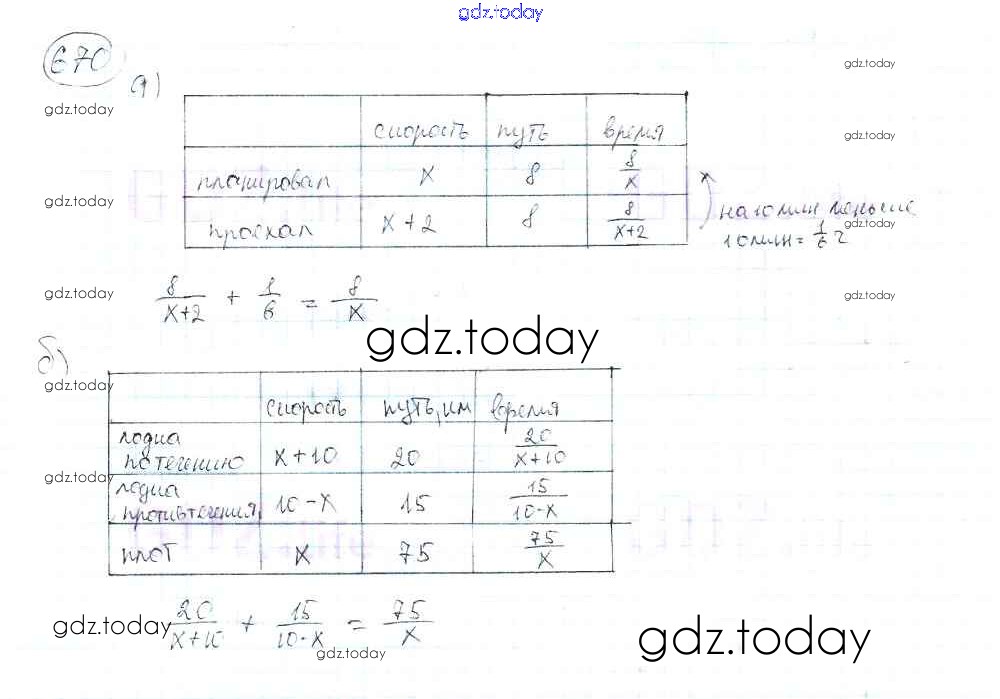 gdz.today
670
gdz.today
а)
gdz.today
скорость путь время
gdz.today
планировал x 8 8/x
gdz.today
проехал x+2 8 8/x+2
на 10 мин меньше
gdz.today
10 мин = 1/6 ч
gdz.today
gdz.today
8/x+2 + 1/6 = 8/x
gdz.today
б)
gdz.today
скорость путь, км время
лодка
по течению x+10 20 20/x+10
gdz.today
лодка
против течения 10-x 15 15/10-x
плот x 75 75/x
20/x+10 + 15/10-x = 75/x
gdz.today
gdz.today
gdz.today